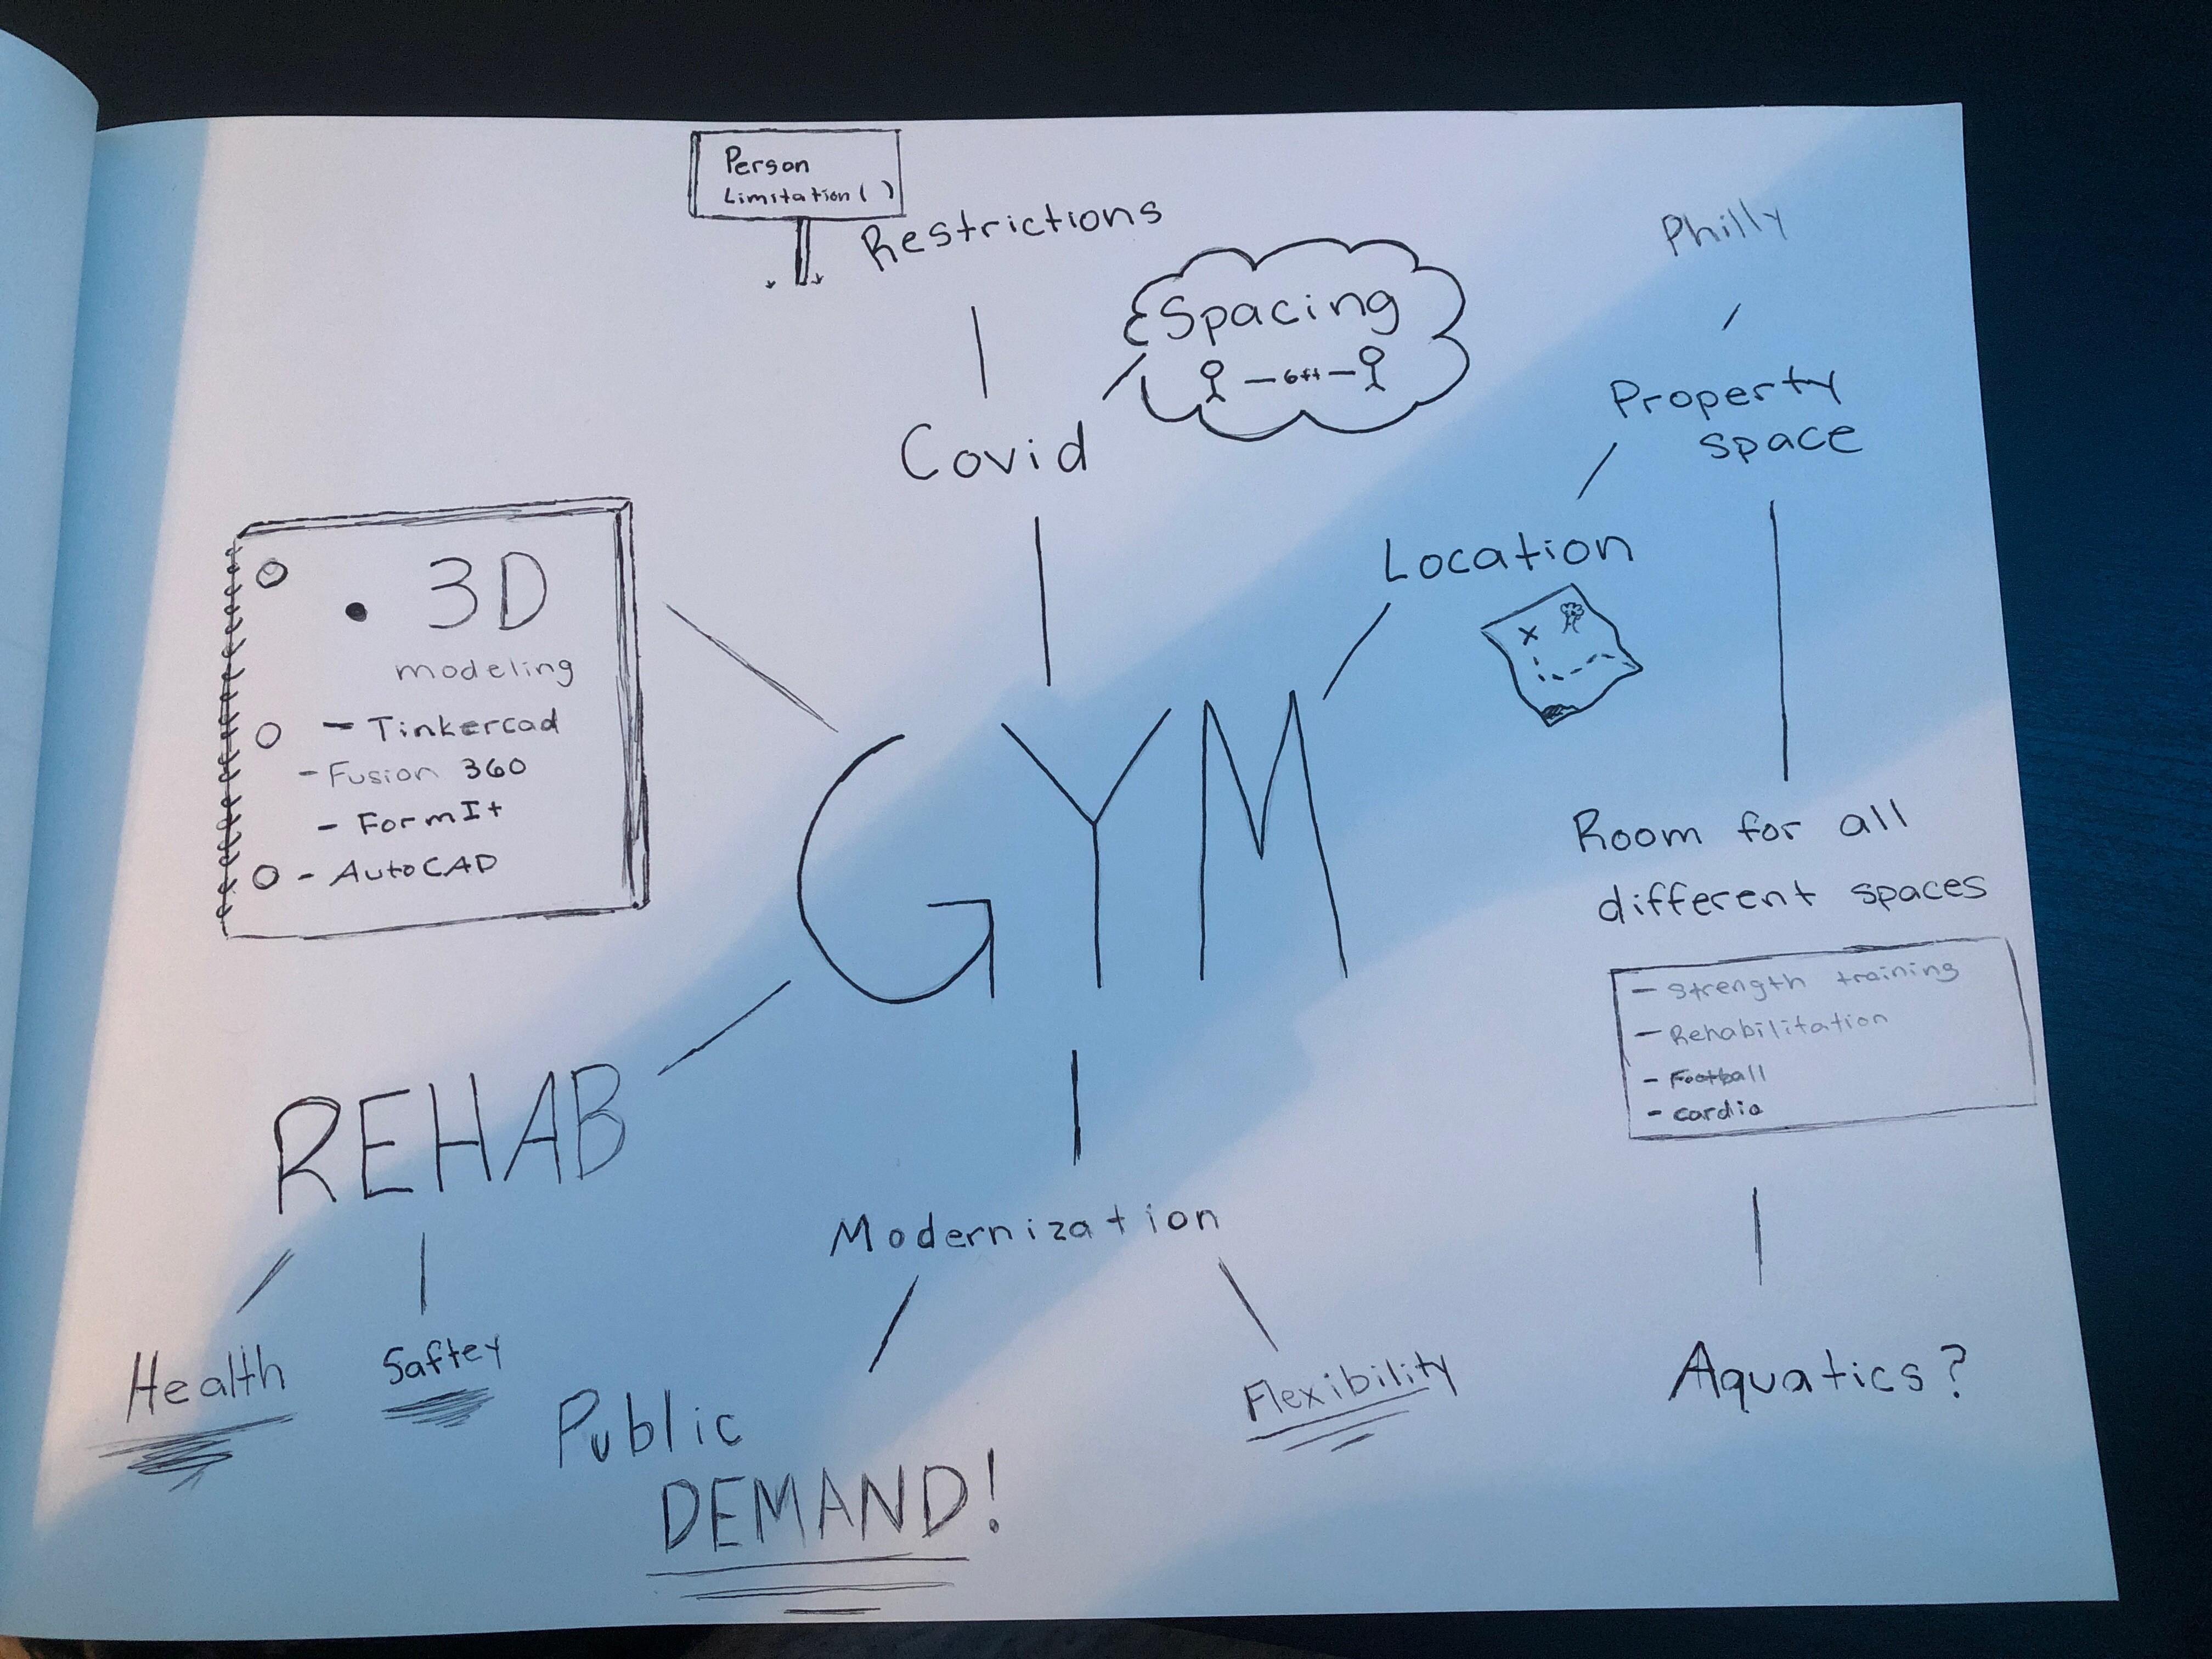 Person
Limitation ( )
Restrictions
Spacing
6ft
Covid
Philly
Property
space
Location
x
3D
modeling
- Tinkercad
- Fusion 360
- FormIt
- AutoCAD
GYM
Room for all
different spaces
- Strength training
- Rehabilitation
- Football
- cardio
Aquatics?
REHAB
Health
Saftey
Modernization
Public
DEMAND!
Flexibility